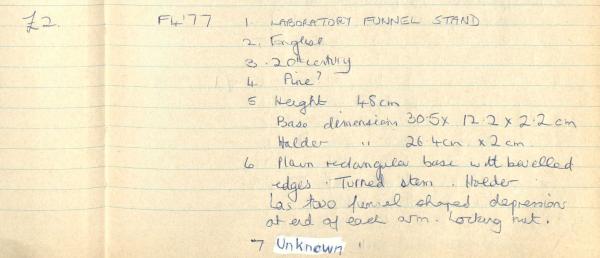 £2. FL'77 1. LABORATORY FUNNEL STAND
2. English
3. 20th century
4. Pine?
5 Height 48cm
Base dimensions 30.5 x 12.2 x 2.2 cm
Holder " 26.4cm x 2 cm.
6 Plain rectangular base with bevelled
edges. Turned stem. Holder
has two funnel shaped depressions
at end of each arm. Locking nut.
7 Unknown